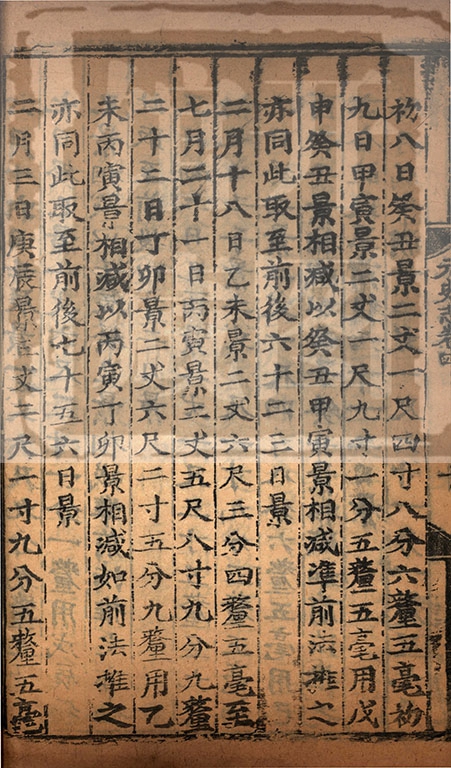 元史志卷四
初八日癸丑景二丈一尺四寸八分六釐五毫初
九日甲寅景二丈一尺九寸一分五釐五毫用戊
申癸丑景相減以癸丑甲寅景相減準前法推之
亦同此取至前後六十二三日景
二月十八日乙未景二丈六尺三分四釐五毫至
七月二十一日丙寅景二丈五尺八寸九分九釐
二十二日丁卯景二丈六尺二寸五分九釐用乙
未丙寅景相減以丙寅丁卯景相減如前法推之
亦同此取至前後七十五六日景
二月三日庚辰景三丈二尺一寸九分五釐五毫